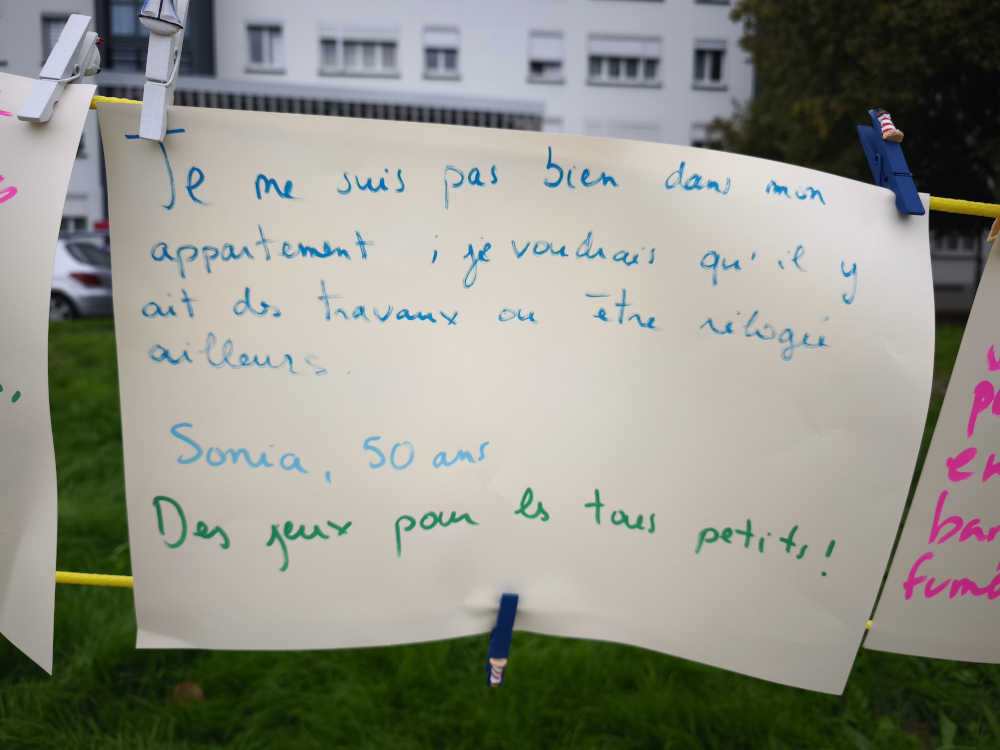 Je ne suis pas bien dans mon
appartement ; je voudrais qu'il y
ait des travaux ou être relogée
ailleurs.
Sonia, 50 ans
Des jeux pour les tous petits !